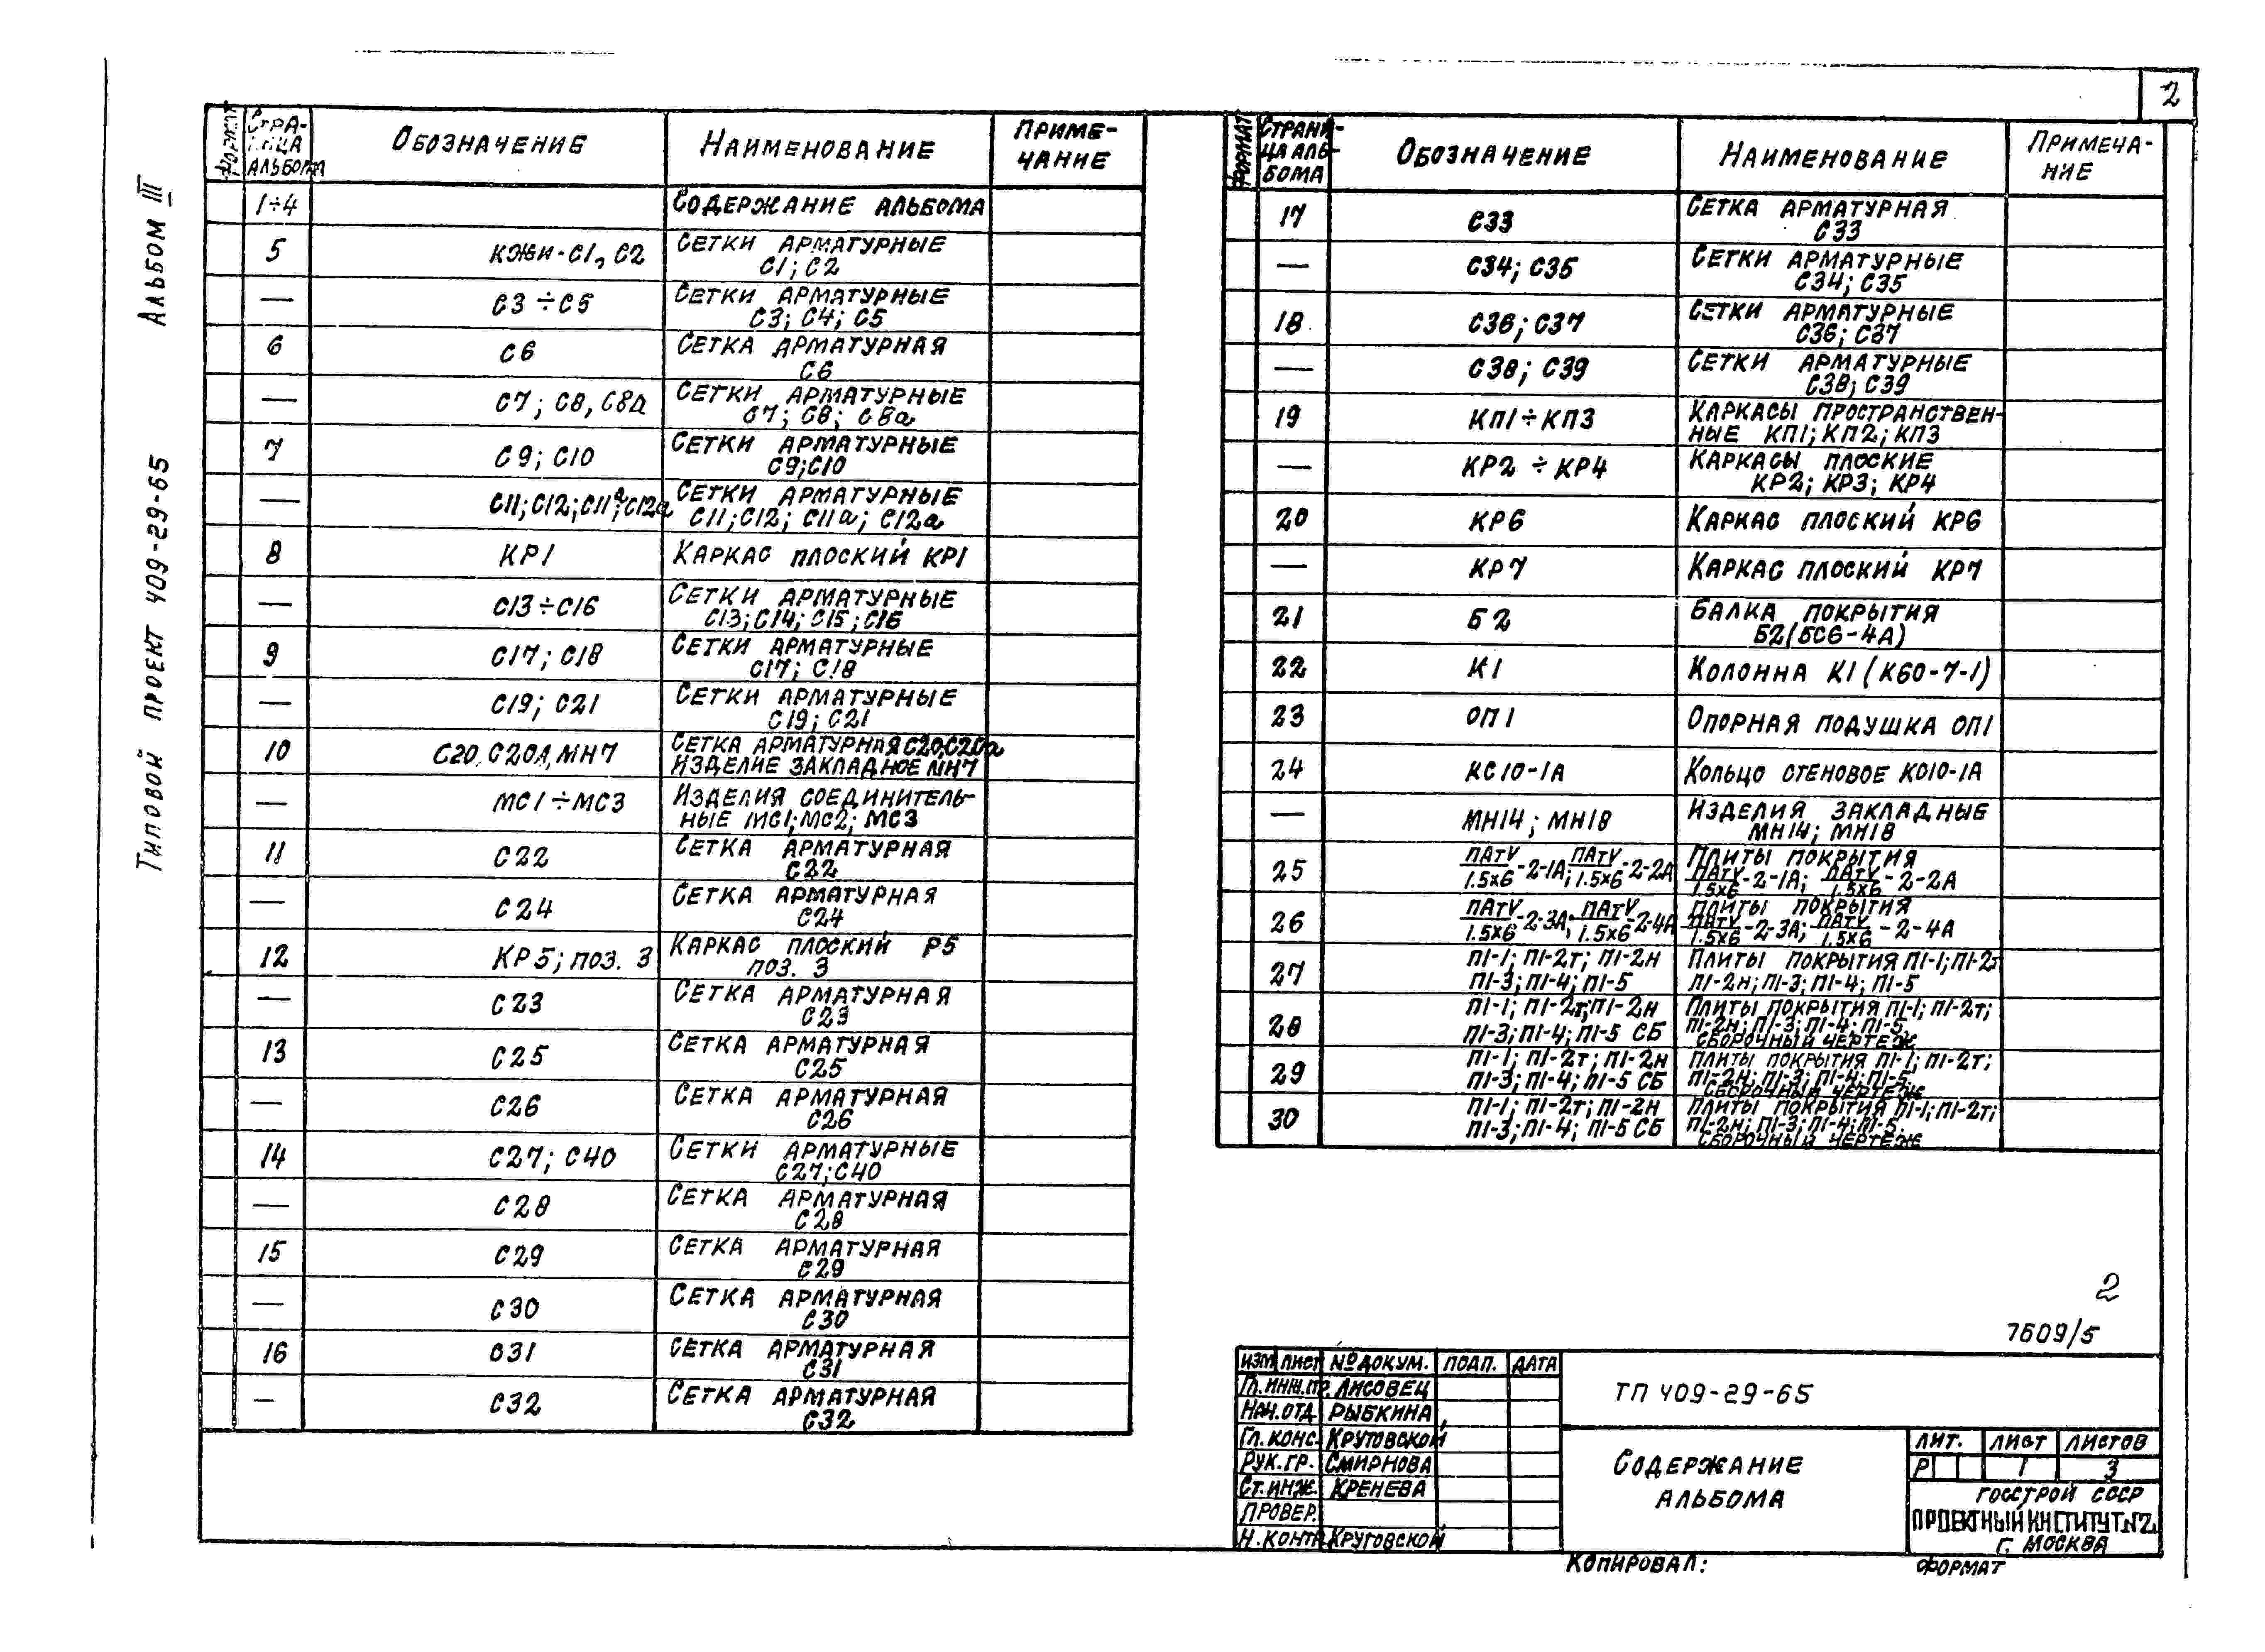 2
Типовой проект 409-29-65 Альбом III
Формат Страница альбома Обозначение Наименование Примечание
1÷4 Содержание альбома
5 КЖИ-С1, С2 Сетки арматурные С1; С2
— С3÷С5 Сетки арматурные С3; С4; С5
6 С6 Сетка арматурная С6
— С7; С8, С8а Сетки арматурные С7; С8; С8а
7 С9; С10 Сетки арматурные С9; С10
— С11; С12; С11а; С12а Сетки арматурные С11; С12; С11а; С12а
8 КР1 Каркас плоский КР1
— С13÷С16 Сетки арматурные С13; С14; С15; С16
9 С17; С18 Сетки арматурные С17; С18
— С19; С21 Сетки арматурные С19; С21
10 С20, С20А, МН7 Сетка арматурная С20, С20а Изделие закладное МН7
— МС1÷МС3 Изделия соединительные МС1; МС2; МС3
11 С22 Сетка арматурная С22
— С24 Сетка арматурная С24
12 КР5; поз. 3 Каркас плоский Р5 поз. 3
— С23 Сетка арматурная С23
13 С25 Сетка арматурная С25
— С26 Сетка арматурная С26
14 С27; С40 Сетки арматурные С27; С40
— С28 Сетка арматурная С28
15 С29 Сетка арматурная С29
— С30 Сетка арматурная С30
16 С31 Сетка арматурная С31
— С32 Сетка арматурная С32
Формат Страница альбома Обозначение Наименование Примечание
17 С33 Сетка арматурная С33
— С34; С35 Сетки арматурные С34; С35
18 С36; С37 Сетки арматурные С36; С37
— С38; С39 Сетки арматурные С38; С39
19 КП1÷КП3 Каркасы пространственные КП1; КП2; КП3
— КР2÷КР4 Каркасы плоские КР2; КР3; КР4
20 КР6 Каркас плоский КР6
— КР7 Каркас плоский КР7
21 Б2 Балка покрытия Б2 (БС6-4А)
22 К1 Колонна К1 (К60-7-1)
23 ОП1 Опорная подушка ОП1
24 КС10-1А Кольцо стеновое КС10-1А
— МН14; МН18 Изделия закладные МН14; МН18
25 ПАтV/1.5х6-2-1А; ПАтV/1.5х6-2-2А Плиты покрытия ПАтV/1.5х6-2-1А; ПАтV/1.5х6-2-2А
26 ПАтV/1.5х6-2-3А; ПАтV/1.5х6-2-4А Плиты покрытия ПАтV/1.5х6-2-3А; ПАтV/1.5х6-2-4А
27 П1-1; П1-2т; П1-2н П1-3; П1-4; П1-5 Плиты покрытия П1-1; П1-2т П1-2н; П1-3; П1-4; П1-5
28 П1-1; П1-2т; П1-2н П1-3; П1-4; П1-5 СБ Плиты покрытия П1-1; П1-2т; П1-2н; П1-3; П1-4; П1-5. Сборочный чертеж
29 П1-1; П1-2т; П1-2н П1-3; П1-4; П1-5 СБ Плиты покрытия П1-1; П1-2т; П1-2н; П1-3; П1-4; П1-5. Сборочный чертеж
30 П1-1; П1-2т; П1-2н П1-3; П1-4; П1-5 СБ Плиты покрытия П1-1; П1-2т; П1-2н; П1-3; П1-4; П1-5. Сборочный чертеж
2
7609/5
Изм Лист № докум. Подп. Дата
Гл. инж. пр. Лисовец
Нач. отд. Рыбкина
Гл. конс. Крутовской
Рук. гр. Смирнова
Ст. инж. Кренева
Провер.
Н. контр. Крутовской
ТП 409-29-65
Содержание альбома
Лит. Лист Листов
Р 1 3
Госстрой СССР
Проектный институт №2
г. Москва
Копировал: Формат